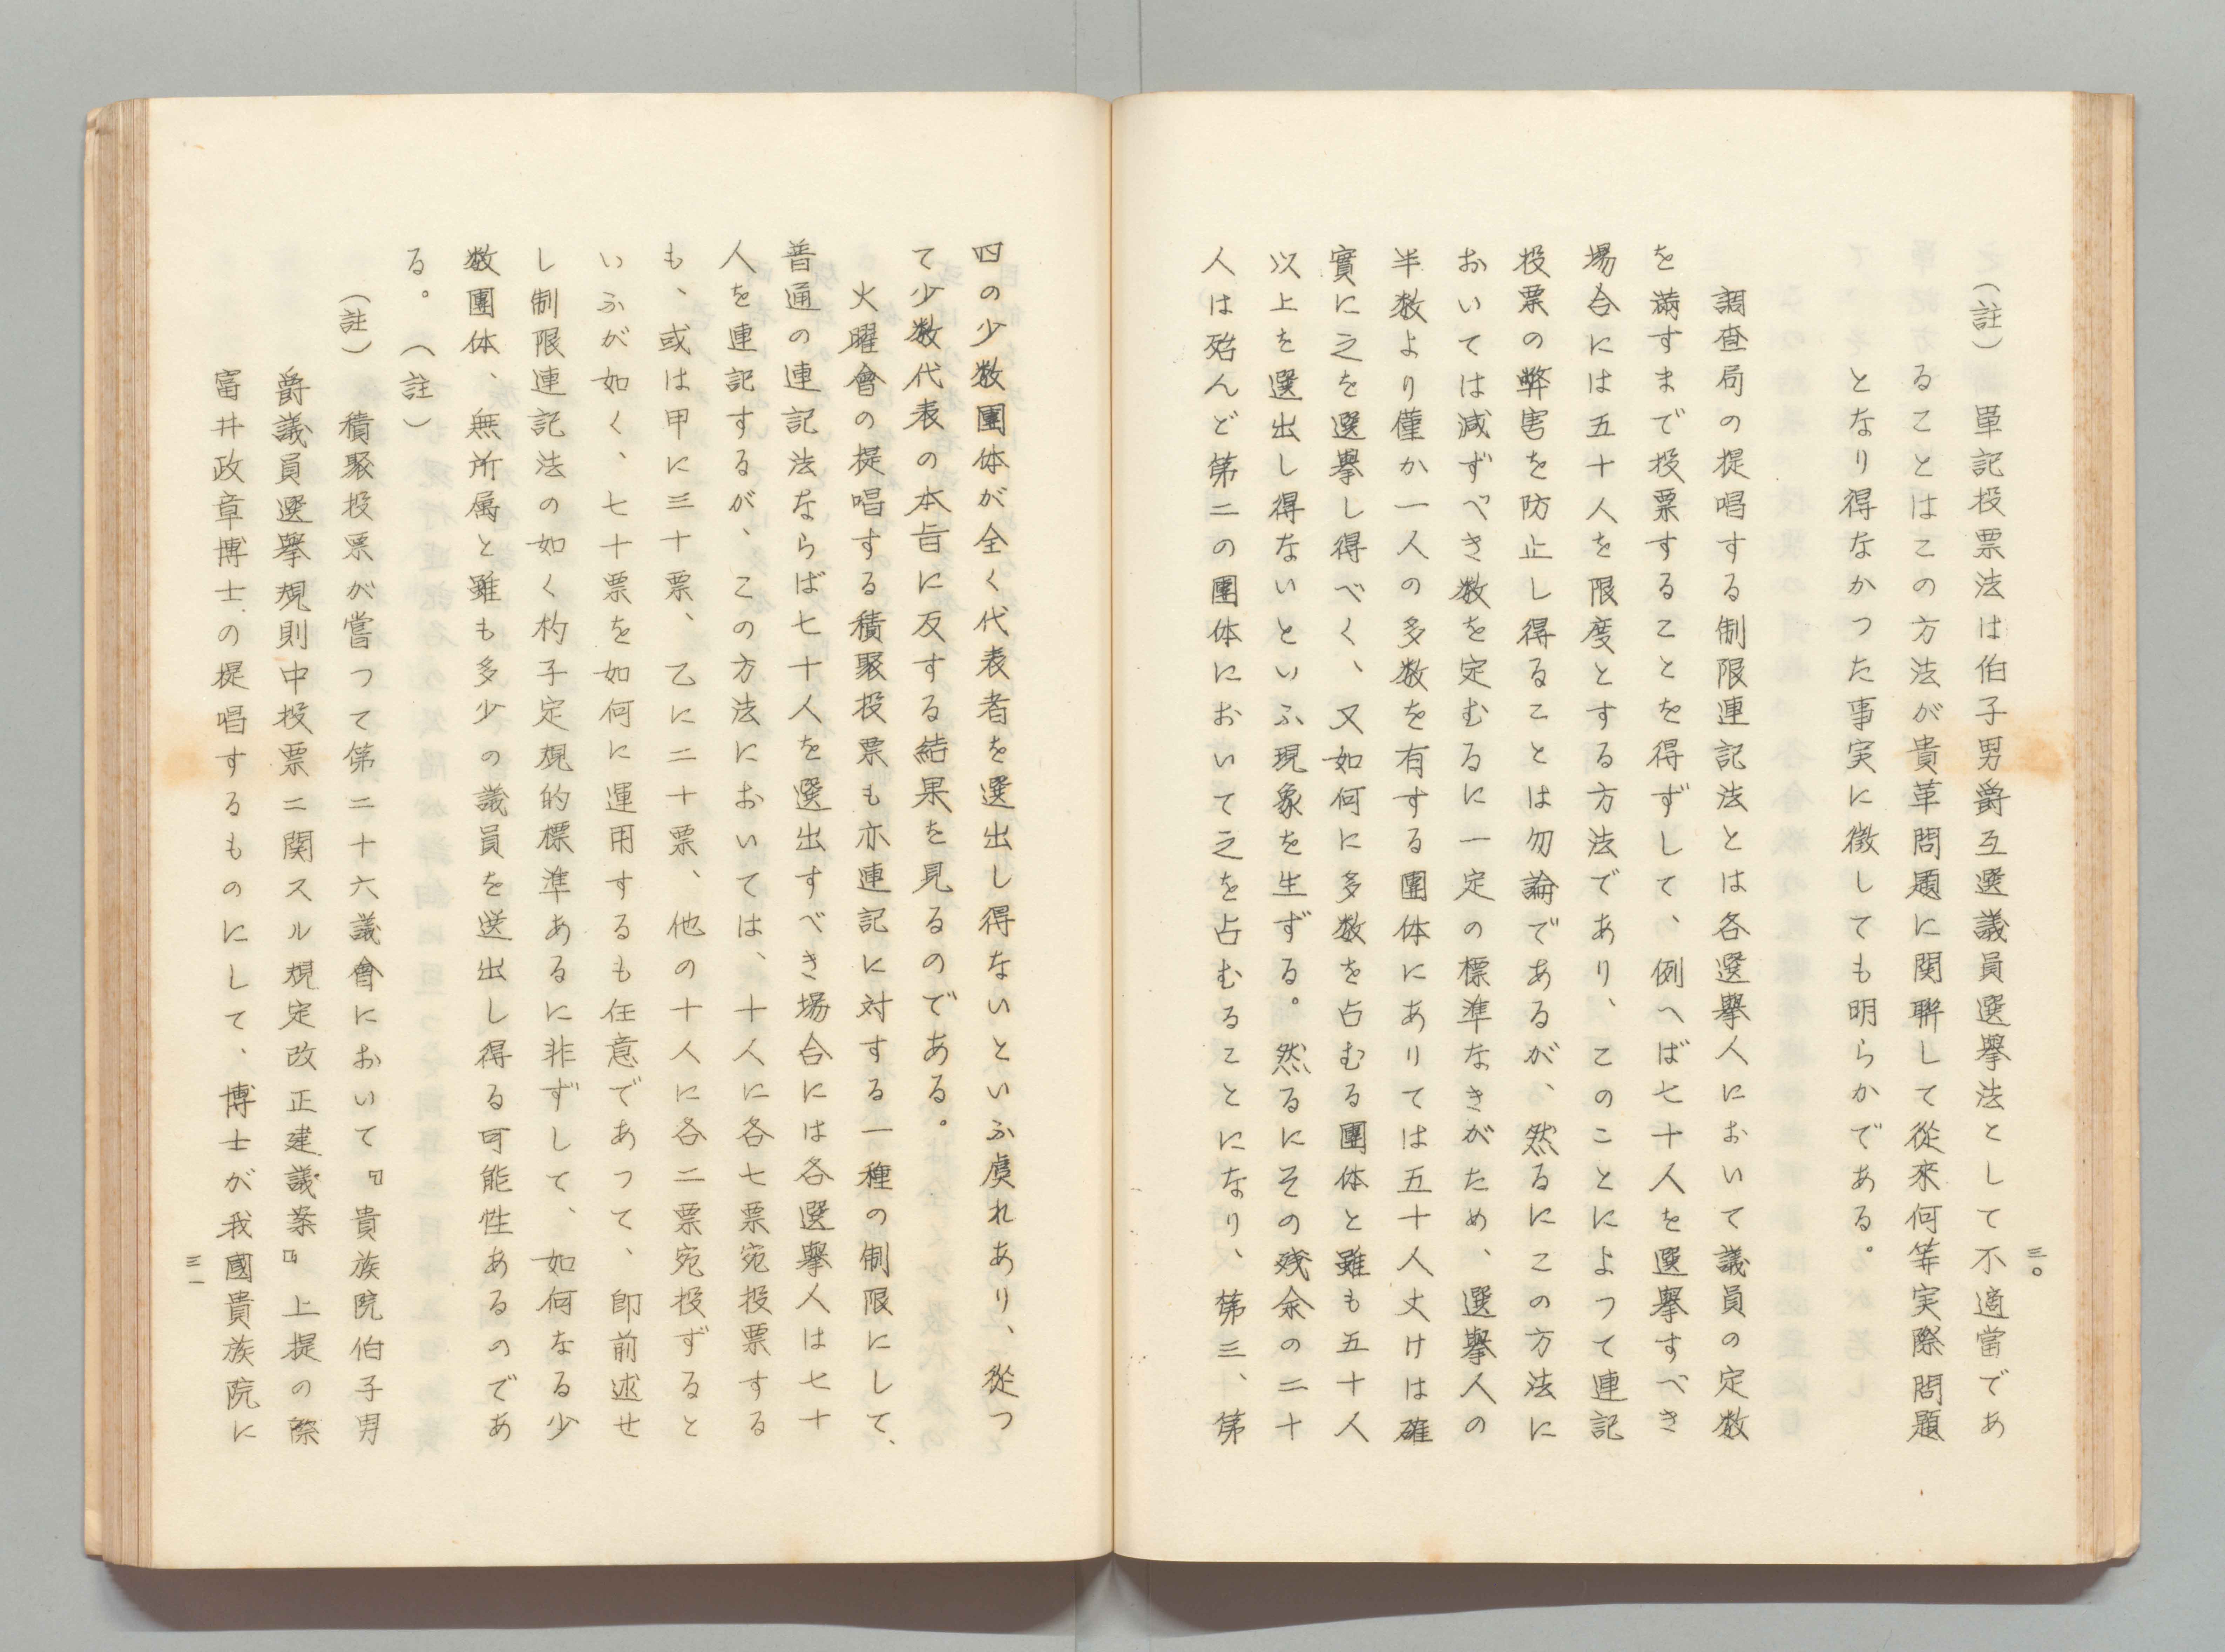 三〇
（註）　單記投票法は伯子男爵互選議員選擧法として不適當であ
ることはこの方法が貴革問題に関聯して從來何等実際問題
となり得なかつた事実に徴しても明らかである。
調査局の提唱する制限連記法とは各選擧人において議員の定数
を満すまで投票することを得ずして、例へば七十人を選擧すべき
場合には五十人を限度とする方法であり、このことによつて連記
投票の弊害を防止し得ることは勿論であるが、然るにこの方法に
おいては減ずべき数を定むるに一定の標準なきがため、選擧人の
半数より僅か一人の多数を有する團体にありては五十人丈けは確
實に之を選擧し得べく、又如何に多数を占むる團体と雖も五十人
以上を選出し得ないといふ現象を生ずる。然るにその残余の二十
人は殆んど第二の團体において之を占むることになり、第三、第
四の少数團体が全く代表者を選出し得ないといふ虞れあり、從つ
て少数代表の本旨に反する結果を見るのである。
火曜會の提唱する積聚投票も亦連記に対する一種の制限にして、
普通の連記法ならば七十人を選出すべき場合には各選擧人は七十
人を連記するが、この方法においては、十人に各七票宛投票する
も、或は甲に三十票、乙に二十票、他の十人に各二票宛投ずると
いふが如く、七十票を如何に運用するも任意であつて、卽前述せ
し制限連記法の如く杓子定規的標準あるに非ずして、如何なる少
数團体、無所属と雖も多少の議員を送出し得る可能性あるのであ
る。（註）
（註）　積聚投票が嘗つて第二十六議會において『貴族院伯子男
爵議員選擧規則中投票ニ関スル規定改正建議案』上提の際
富井政章博士の提唱するものにして、博士が我國貴族院に
三一